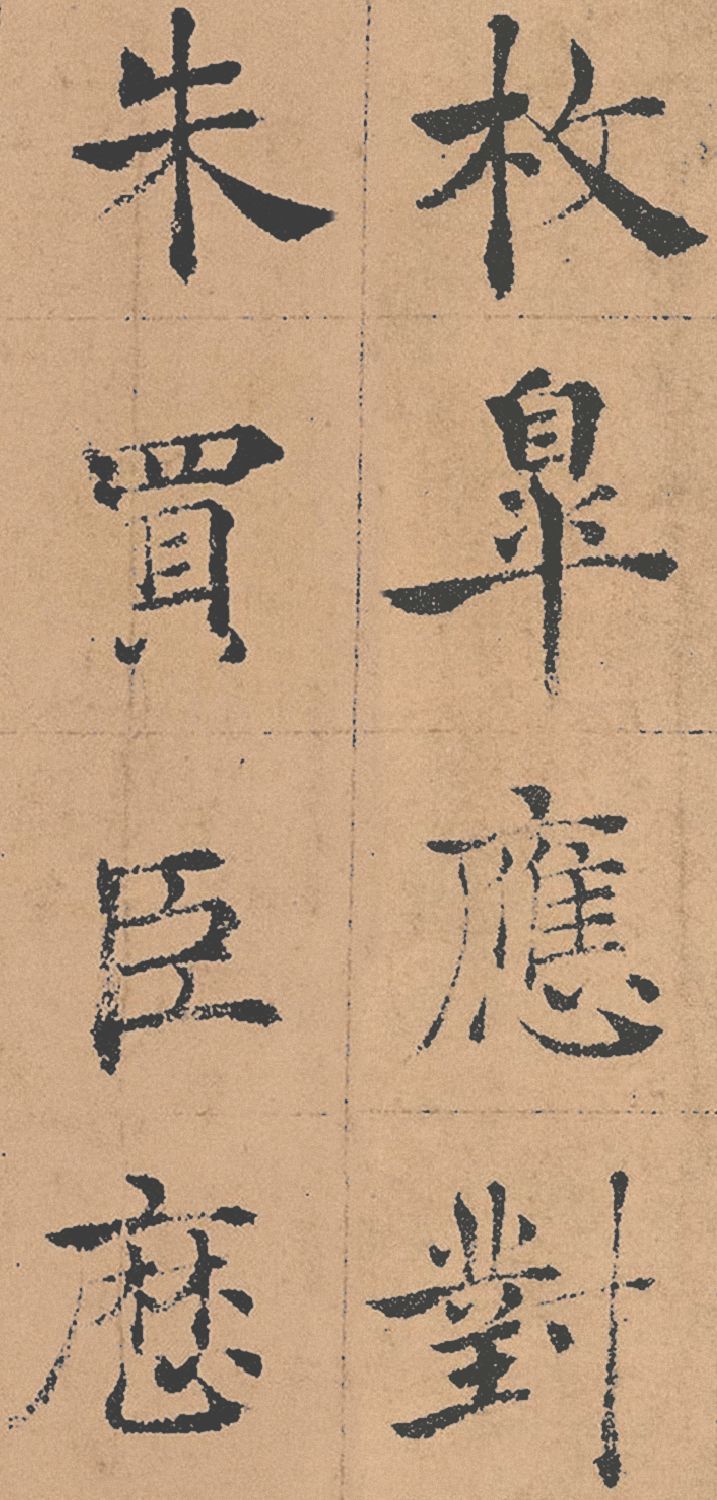 枚皐應對
朱買臣歷